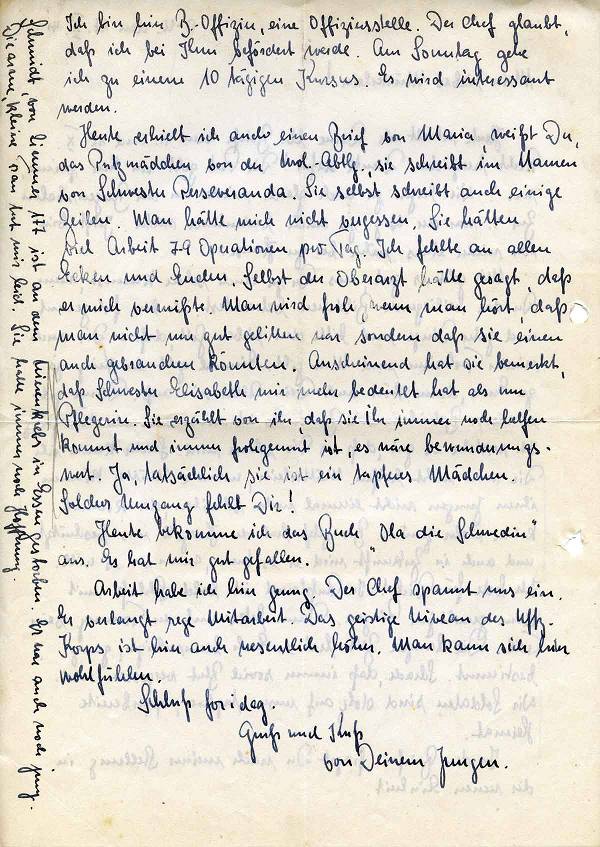 Ich bin hier B.-Offizier, eine Offiziersstelle. Der Chef glaubt,
daß ich bei Ihm befördert werde. Am Sonntag gehe
ich zu einem 10 tägigen Kursus. Es wird interessant
werden.
Heute erhielt ich auch einen Brief von Maria, weißt Du,
das Putzmädchen von der Abtlg., sie schreibt im Namen
von Schwester Perseveranda. Sie selbst schreibt auch einige
Zeilen. Man hätte mich nicht vergessen. Sie hätten
viel Arbeit 7-9 Operationen pro Tag. Ich fehlte an allen
Ecken und Enden. Selbst der Oberarzt hätte gesagt, daß
er mich vermißte. Man wird froh wenn man hört daß
man nicht nur gut gelitten war sondern daß sie einen
auch gebrauchen könnten. Anscheinend hat sie bemerkt,
daß Schwester Elisabeth mir mehr bedeutet hat als nur
Pflegerin. Sie erzählt von ihr, daß sie ihr immer noch helfen
kommt und immer frohgemut ist, es wäre bewunderungs-
wert. Ja, tatsächlich sie ist ein tapferes Mädchen.
Solcher Umgang fehlt Dir!
Heute bekomme ich das Buch "Ola die Schwedin"
aus. Es hat mir gut gefallen.
Arbeit habe ich hier genug. Der Chef spannt uns ein.
Er verlangt rege Mitarbeit. Das geistige Niveau des Uffz.-
Korps ist hier auch wesentlich höher. Man kann sich hier
wohlfühlen.
Schluß for i dag.
Gruß und Kuß
von Deinem Jungen.
Schmidt, von Limmer 177 ist an dem Nierenkrebs in Essen gestorben. Er war auch noch jung.
Die arme, kleine Frau tut mir leid. Sie hatte immer noch Hoffnung.